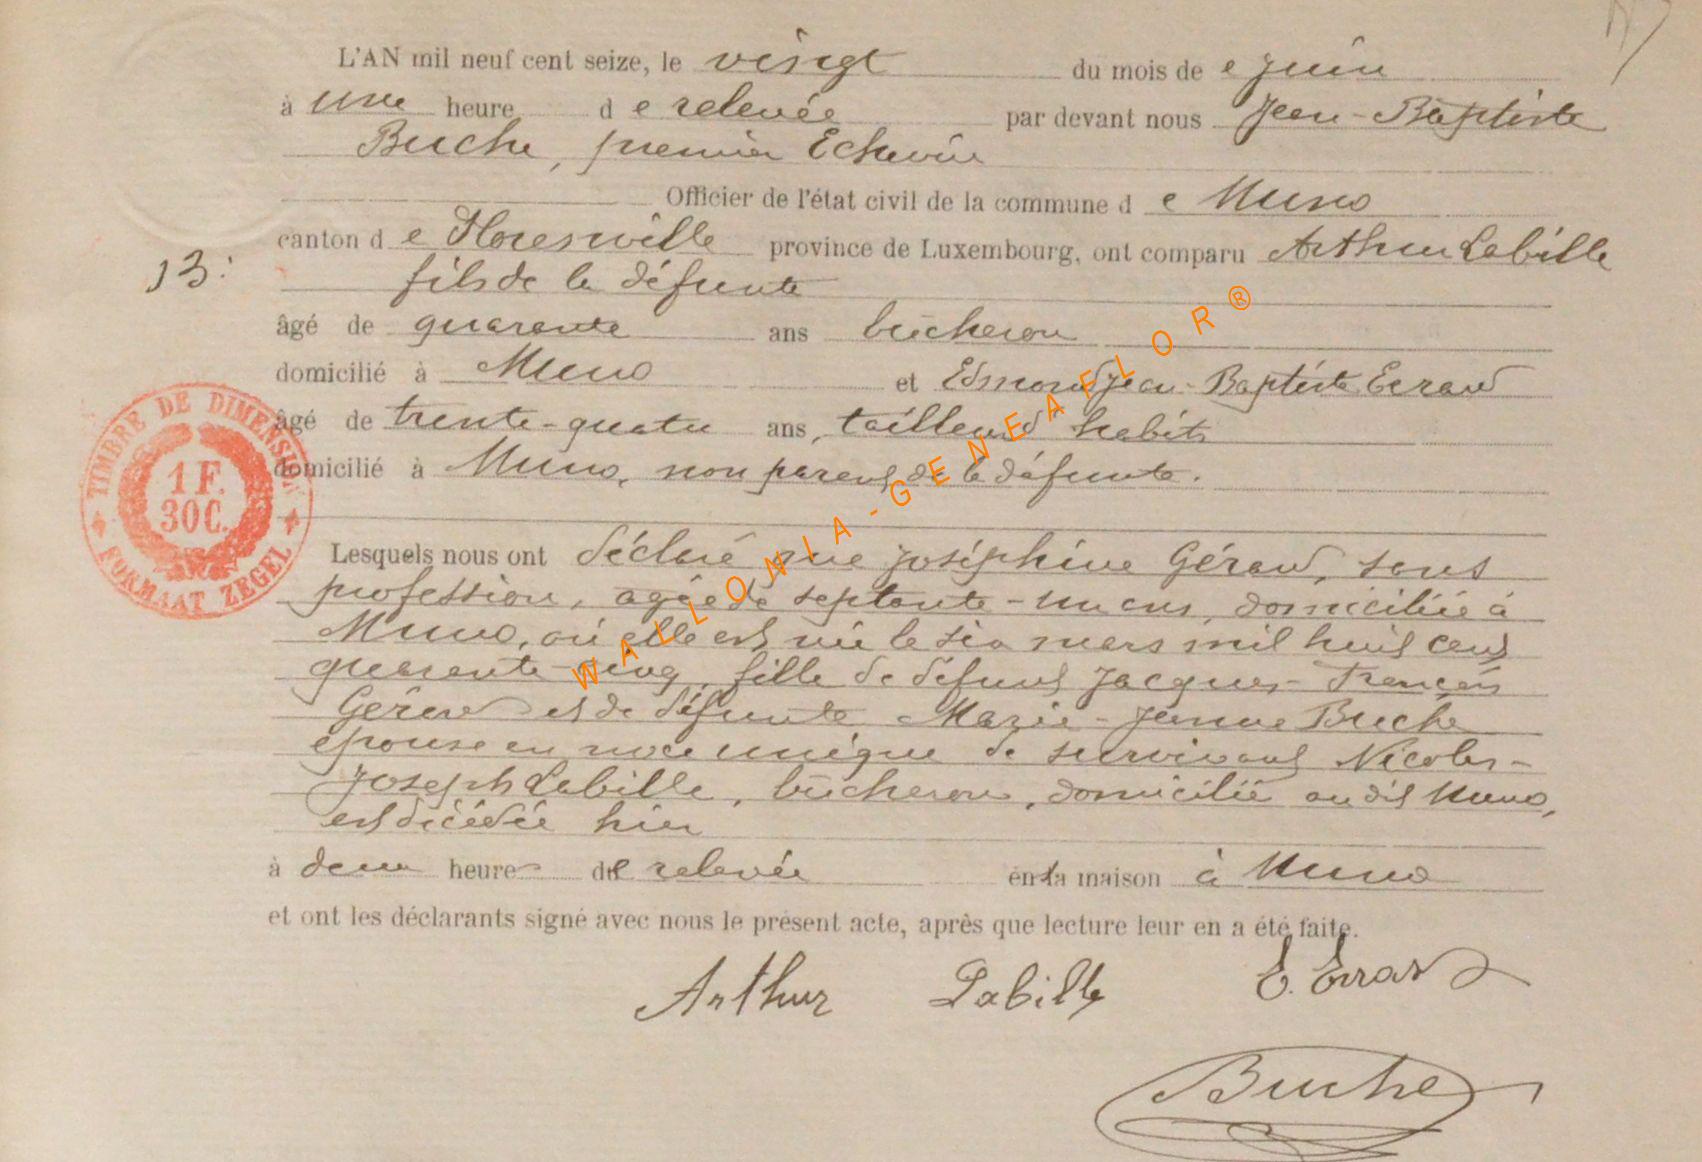 L'AN mil neuf cent seize, le vingt du mois de e juin
à une heure d e relevée par devant nous Jean-Baptiste
Buche, premier Echevin
Officier de l'état civil de la commune d e Muno
canton d e Florenville province de Luxembourg, ont comparu Arthur Labille
13.
fils de la défunte
âgé de quarante ans bûcheron
domicilié à Muno et Edmond Jean-Baptiste Errard
âgé de trente-quatre ans, tailleur d'habits
domicilié à Muno, non parent de la défunte.
TIMBRE DE DIMENSION
1 F.
30 C.
FORMAAT ZEGEL
Lesquels nous ont déclaré que Joséphine Gérard, sans
profession, agée de septante-un ans, domiciliée à
Muno, où elle est née le six mars mil huit cent
quarante-cinq, fille de défunt Jacques-François
Gérard et de défunte Marie-Jeanne Buche
épouse en noce unique de survivant Nicolas-
Joseph Labille, bûcheron, domicilié au dit Muno,
est décédée hier
à deux heures de relevée en sa maison à Muno
et ont les déclarants signé avec nous le présent acte, après que lecture leur en a été faite.
Arthur Labille E. Errard
Buche
WALLONIA-GENEAFLOR®